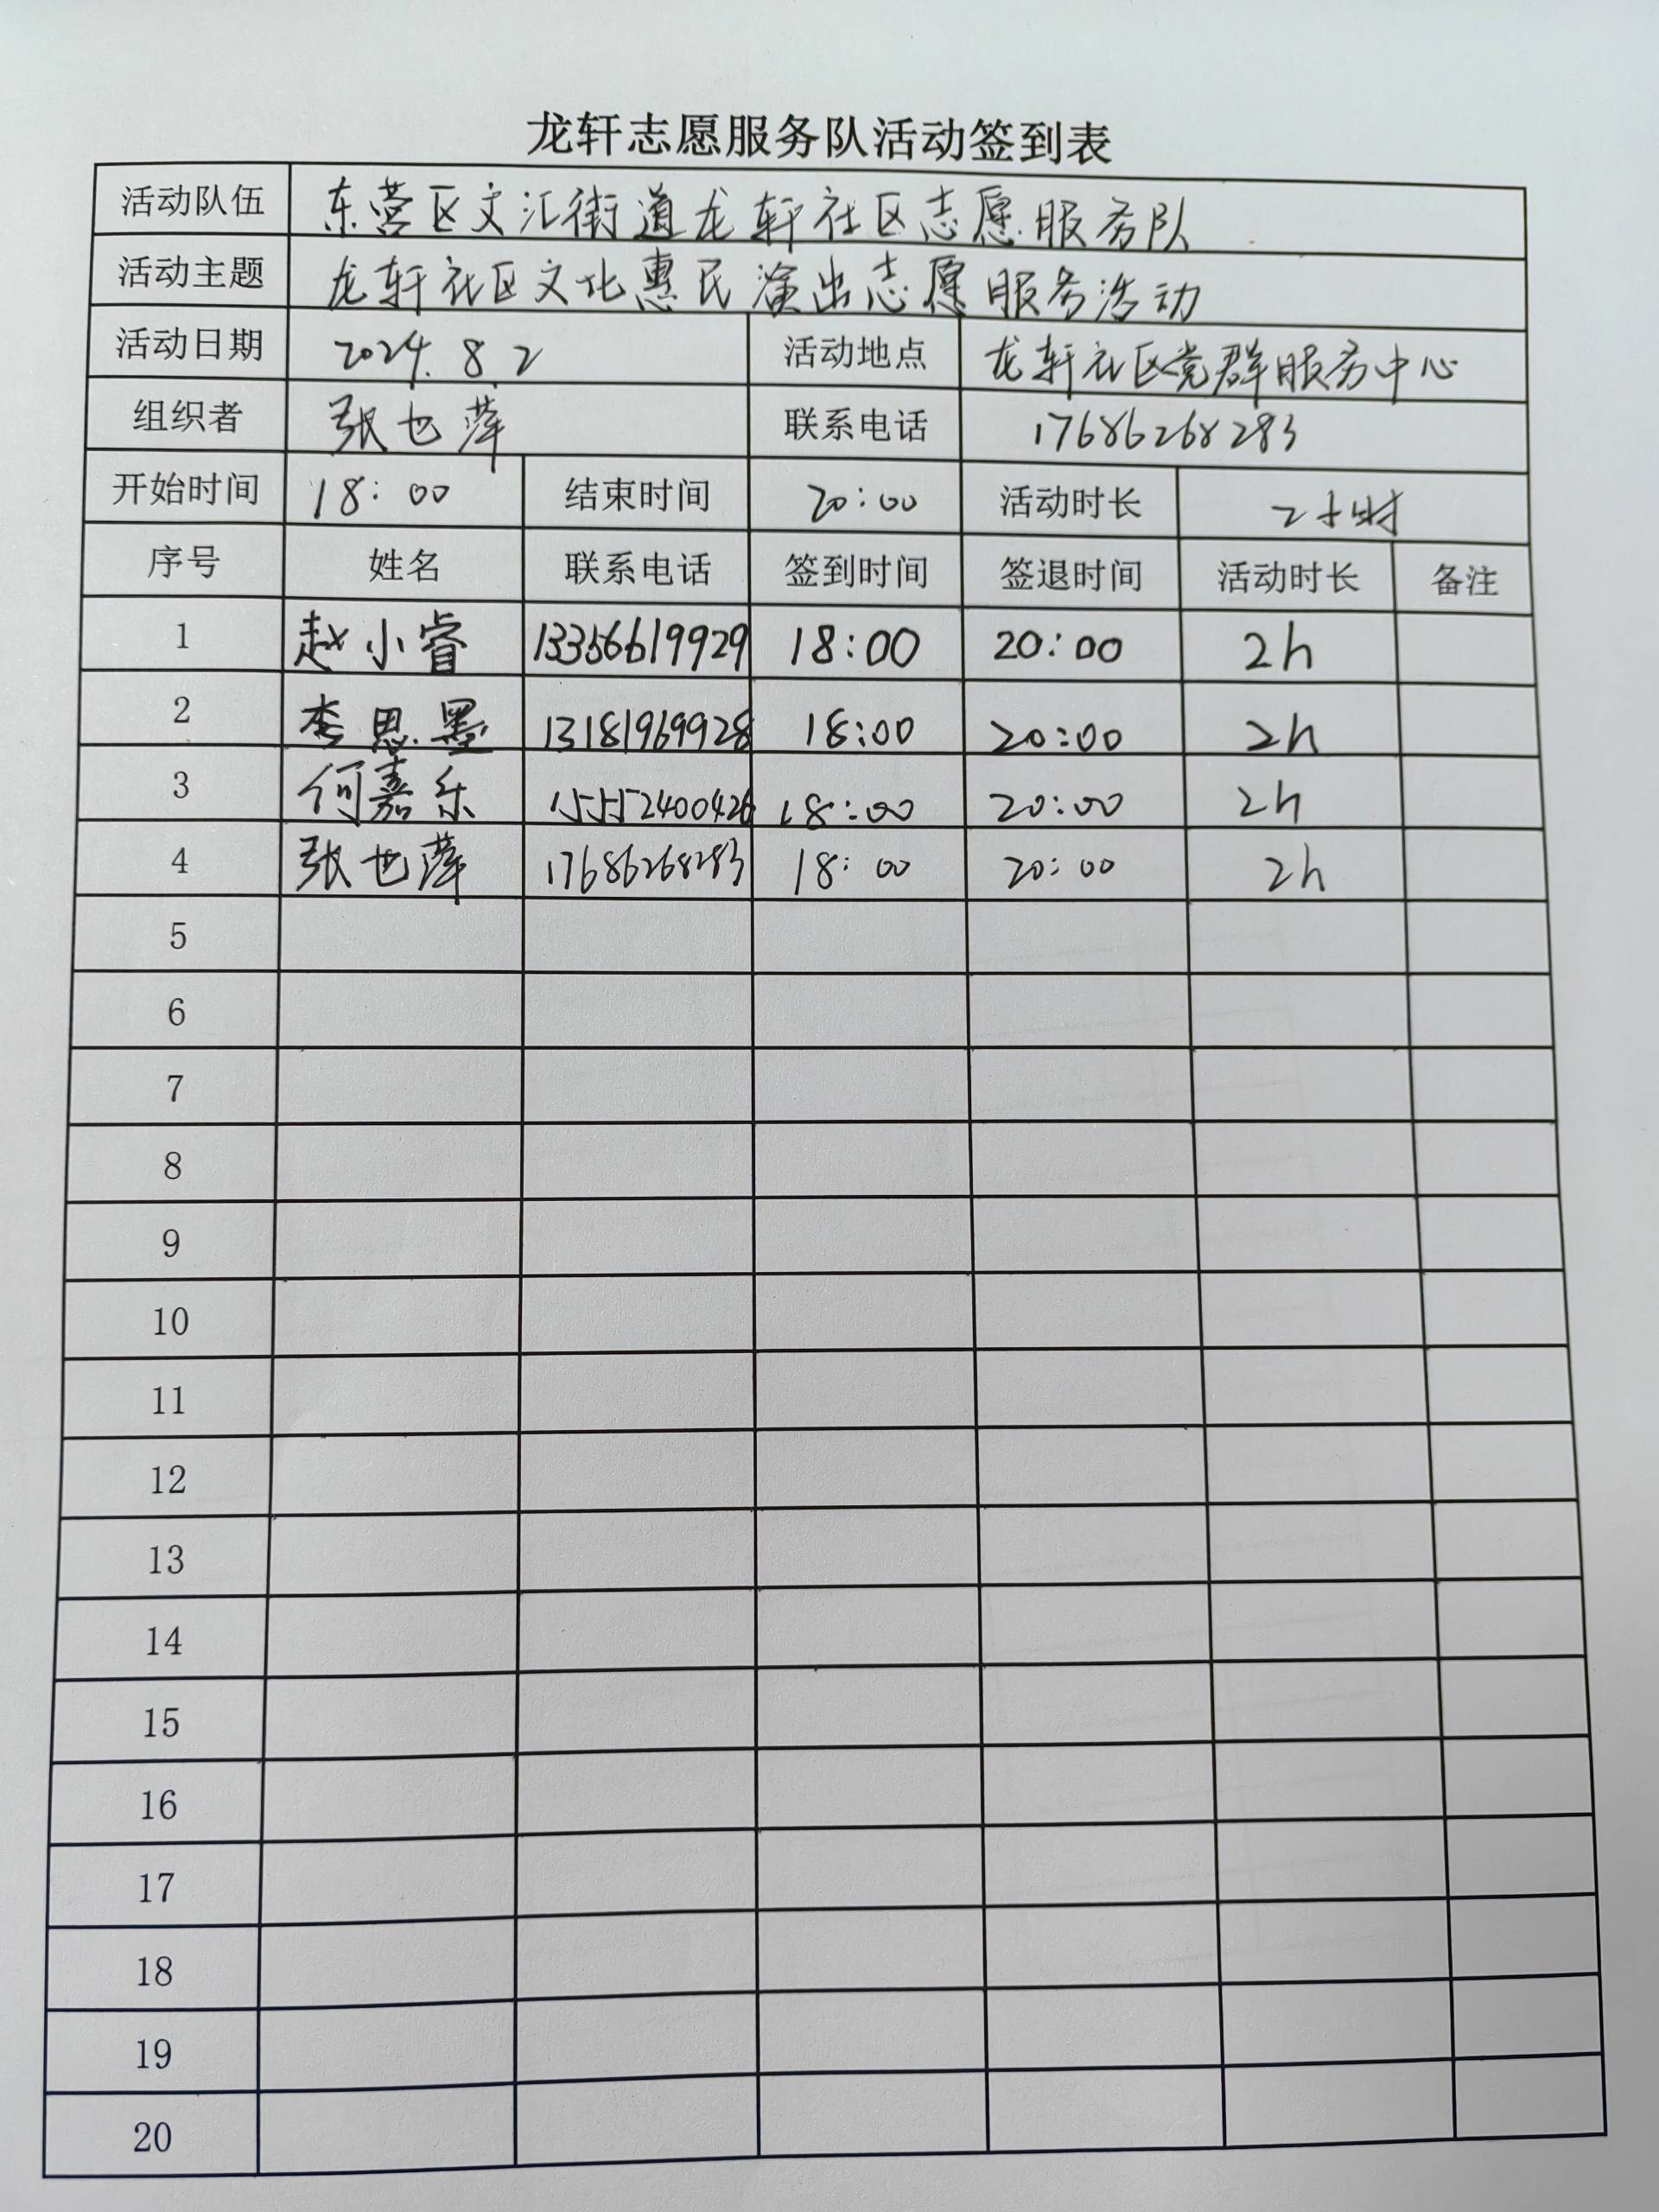 龙轩志愿服务队活动签到表
活动队伍 东营区文汇街道龙轩社区志愿服务队
活动主题 龙轩社区文化惠民演出志愿服务活动
活动日期 2024.8.2 活动地点 龙轩社区党群服务中心
组织者 张也萍 联系电话 17686268283
开始时间 18:00 结束时间 20:00 活动时长 2小时
序号 姓名 联系电话 签到时间 签退时间 活动时长 备注
1 赵小睿 13356619929 18:00 20:00 2h
2 李思墨 13181969928 18:00 20:00 2h
3 何嘉乐 15552400426 18:00 20:00 2h
4 张也萍 17686268283 18:00 20:00 2h
5
6
7
8
9
10
11
12
13
14
15
16
17
18
19
20